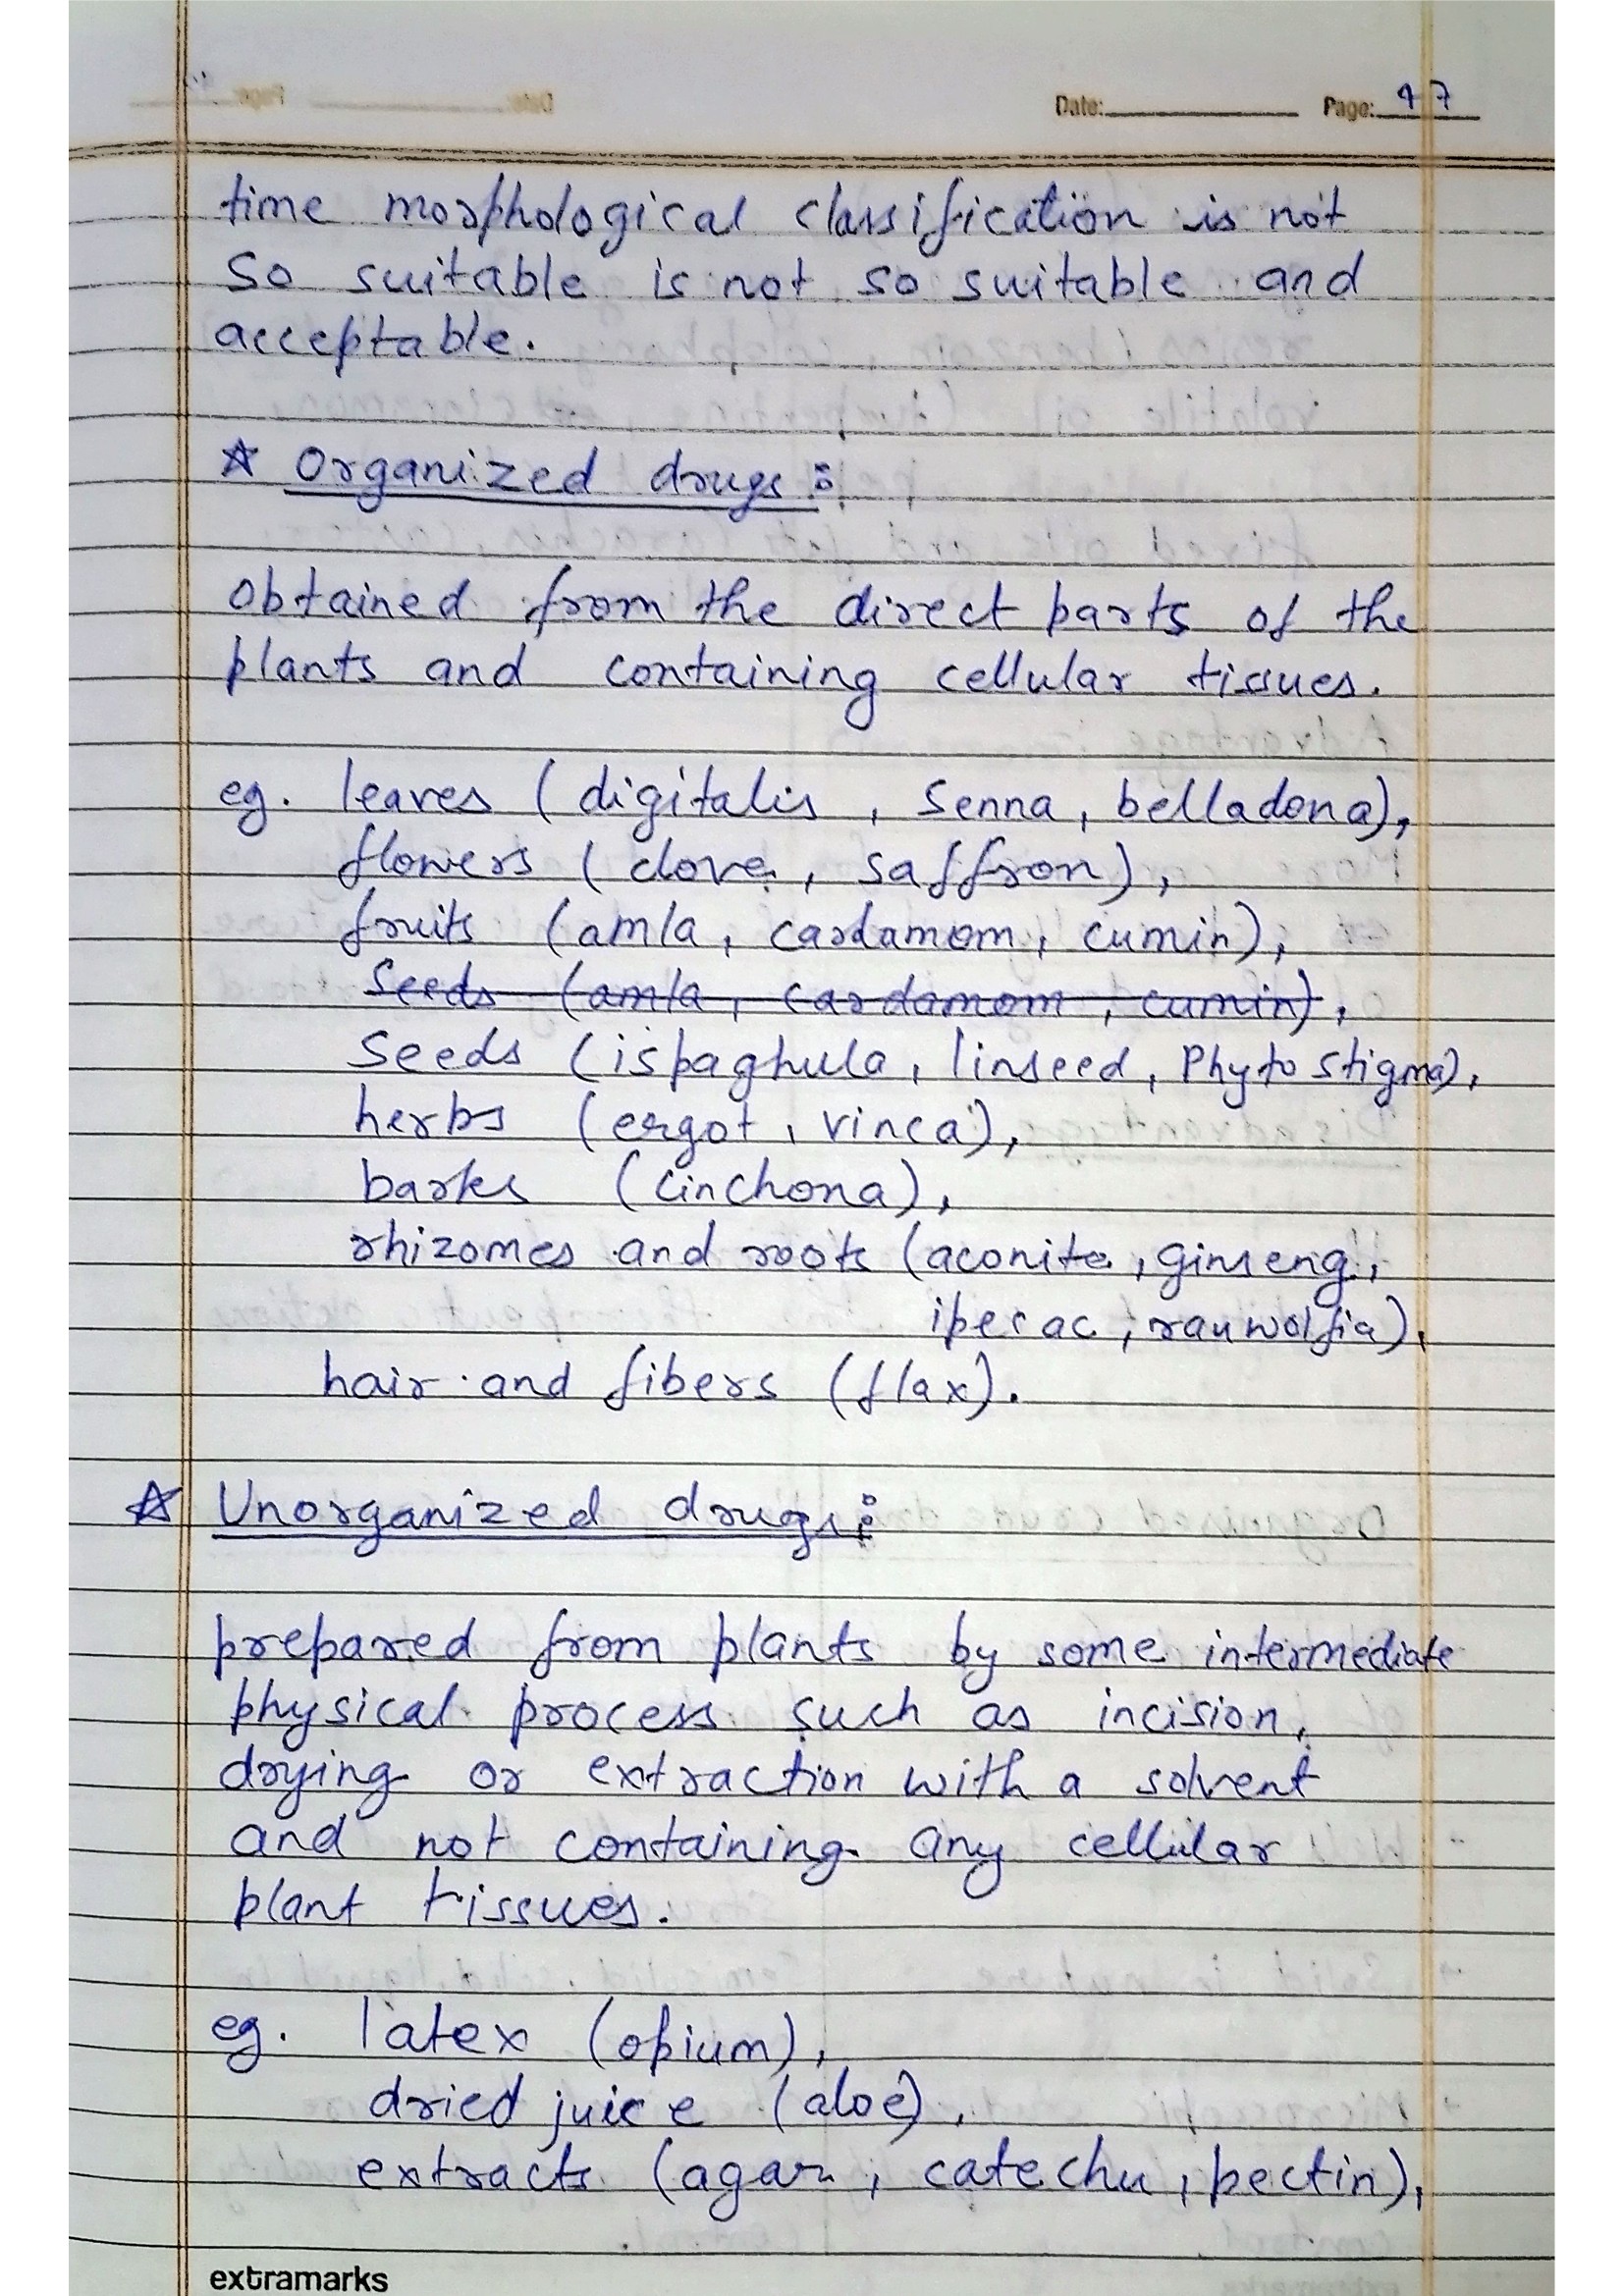 Date: Page: 47
time morphological classification is not
so suitable is not so suitable and
acceptable.
☆ Organized drugs :
obtained from the direct parts of the
plants and containing cellular tissues.
eg. leaves (digitalis, senna, belladona),
flowers (clove, saffron),
fruits (amla, cardamom, cumin),
Seeds (amla, cardamom, cumin),
Seeds (ispaghula, linseed, Phytostigma),
herbs (ergot, vinca),
barks (cinchona),
rhizomes and roots (aconite, ginseng,
ipecac, rauwolfia),
hair and fibers (flax).
☆ Unorganized drugs :
prepared from plants by some intermediate
physical process such as incision,
drying or extraction with a solvent
and not containing any cellular
plant tissues.
eg. latex (opium),
dried juice (aloe),
extracts (agar, catechu, pectin),
extramarks